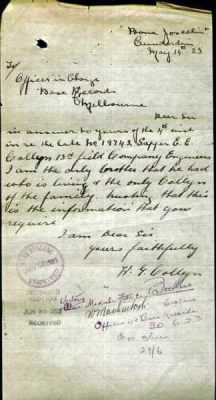 "Bona Joscelin"
Cunderdin
May 14th 23
To/
Officer in Charge
Base Records
Melbourne
Dear Sir
in answer to yours of the 4th inst
in re the late No 19742 Sapper E. E.
Collyn 13th field Company Engineers
I am the only brother that he had
who is living & the only Collyn
of the family, trusting that this
is the information that you
require
I am Dear Sir
yours faithfully
H. G. Collyn
RECEIVED
Officer i/c Base Records
30.6.23
29/6